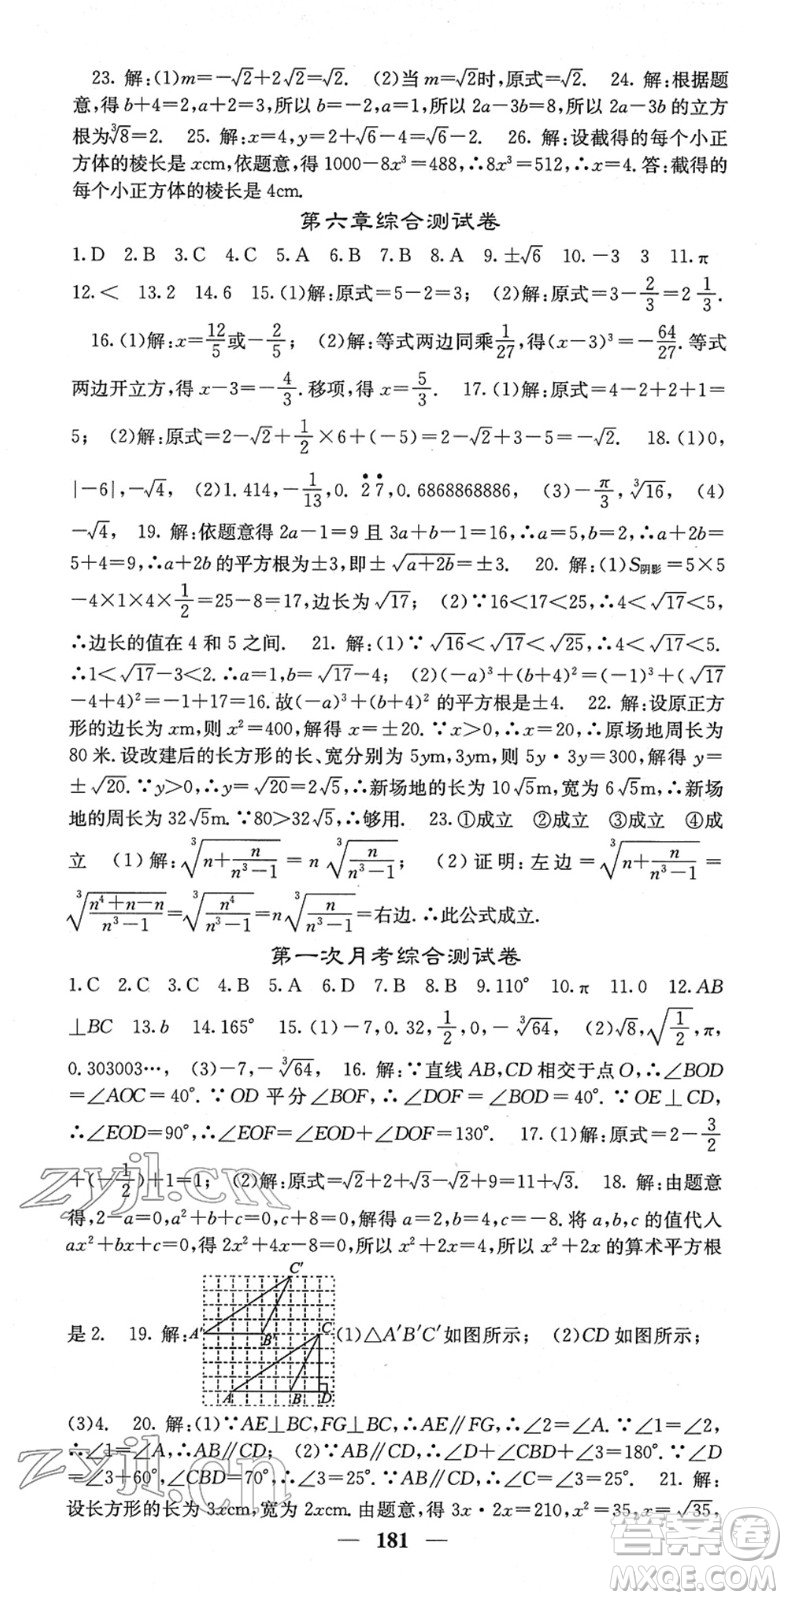 23. 解:(1)m=-√2+2√2=√2. (2)当 m=√2时,原式=√2. 24. 解:根据题
意,得 b+4=2,a+2=3,所以 b=-2,a=1,所以 2a-3b=8,所以 2a-3b 的立方
根为∛8=2. 25. 解:x=4,y=2+√6-4=√6-2. 26. 解:设截得的每个小正
方体的棱长是 xcm,依题意,得 1000-8x³=488,∴8x³=512,∴x=4. 答:截得的
每个小正方体的棱长是 4cm.
第六章综合测试卷
1. D 2. B 3. C 4. C 5. A 6. B 7. B 8. A 9. ±√6 10. -3 3 11. π
12. < 13. 2 14. 6 15. (1)解:原式=5-2=3; (2)解:原式=3-2/3=2 1/3.
16. (1)解:x=12/5或-2/5; (2)解:等式两边同乘1/27,得(x-3)³=-64/27. 等式
两边开立方,得 x-3=-4/3. 移项,得 x=5/3. 17. (1)解:原式=4-2+2+1=
5; (2)解:原式=2-√2+1/2×6+(-5)=2-√2+3-5=-√2. 18. (1)0,
|-6|,-√4, (2)1.414,-1/13,0.2̇7̇,0.6868868886, (3)-π/3,∛16, (4)
-√4, 19. 解:依题意得 2a-1=9 且 3a+b-1=16,∴a=5,b=2,∴a+2b=
5+4=9,∴a+2b 的平方根为±3,即±√(a+2b)=±3. 20. 解:(1)S阴影=5×5
-4×1×4×1/2=25-8=17,边长为√17; (2)∵16<17<25,∴4<√17<5,
∴边长的值在 4 和 5 之间. 21. 解:(1)∵√16<√17<√25,∴4<√17<5.
∴1<√17-3<2. ∴a=1,b=√17-4; (2)(-a)³+(b+4)²=(-1)³+(√17
-4+4)²=-1+17=16. 故(-a)³+(b+4)² 的平方根是±4. 22. 解:设原正方
形的边长为 xm,则 x²=400,解得 x=±20. ∵x>0,∴x=20,∴原场地周长为
80 米. 设改建后的长方形的长、宽分别为 5ym,3ym,则 5y·3y=300,解得 y=
±√20. ∵y>0,∴y=√20=2√5,∴新场地的长为 10√5m,宽为 6√5m,∴新场
地的周长为 32√5m. ∵80>32√5,∴够用. 23. ①成立 ②成立 ③成立 ④成
立 (1)解:∛(n+n/(n³-1))=n∛(n/(n³-1)); (2)证明:左边=∛(n+n/(n³-1))=
∛((n⁴+n-n)/(n³-1))=∛(n⁴/(n³-1))=n∛(n/(n³-1))=右边. ∴此公式成立.
第一次月考综合测试卷
1. C 2. C 3. C 4. B 5. A 6. D 7. B 8. B 9. 110° 10. π 11. 0 12. AB
⊥BC 13. b 14. 165° 15. (1)-7,0.32,1/2,0,-∛64, (2)√8,√(1/2),π,
0.303003…, (3)-7,-∛64, 16. 解:∵直线 AB,CD 相交于点 O,∴∠BOD
=∠AOC=40°. ∵OD 平分∠BOF,∴∠DOF=∠BOD=40°. ∵OE⊥CD,
∴∠EOD=90°,∴∠EOF=∠EOD+∠DOF=130°. 17. (1)解:原式=2-3/2
+(-1/2)+1=1; (2)解:原式=√2+2+√3-√2+9=11+√3. 18. 解:由题意
得,2-a=0,a²+b+c=0,c+8=0,解得 a=2,b=4,c=-8. 将 a,b,c 的值代入
ax²+bx+c=0,得 2x²+4x-8=0,所以 x²+2x=4,所以 x²+2x 的算术平方根
是 2. 19. 解: (1)△A′B′C′如图所示; (2)CD 如图所示;
C′
A′ B′ C
A B D
(3)4. 20. 解:(1)∵AE⊥BC,FG⊥BC,∴AE∥FG,∴∠2=∠A. ∵∠1=∠2,
∴∠1=∠A,∴AB∥CD; (2)∵AB∥CD,∴∠D+∠CBD+∠3=180°. ∵∠D
=∠3+60°,∠CBD=70°,∴∠3=25°. ∵AB∥CD,∴∠C=∠3=25°. 21. 解:
设长方形的长为 3xcm,宽为 2xcm. 由题意,得 3x·2x=210,x²=35,x=√35,
— 181 —
zyjl.cn
zyjl.cn
答案圈
MXQE.COM